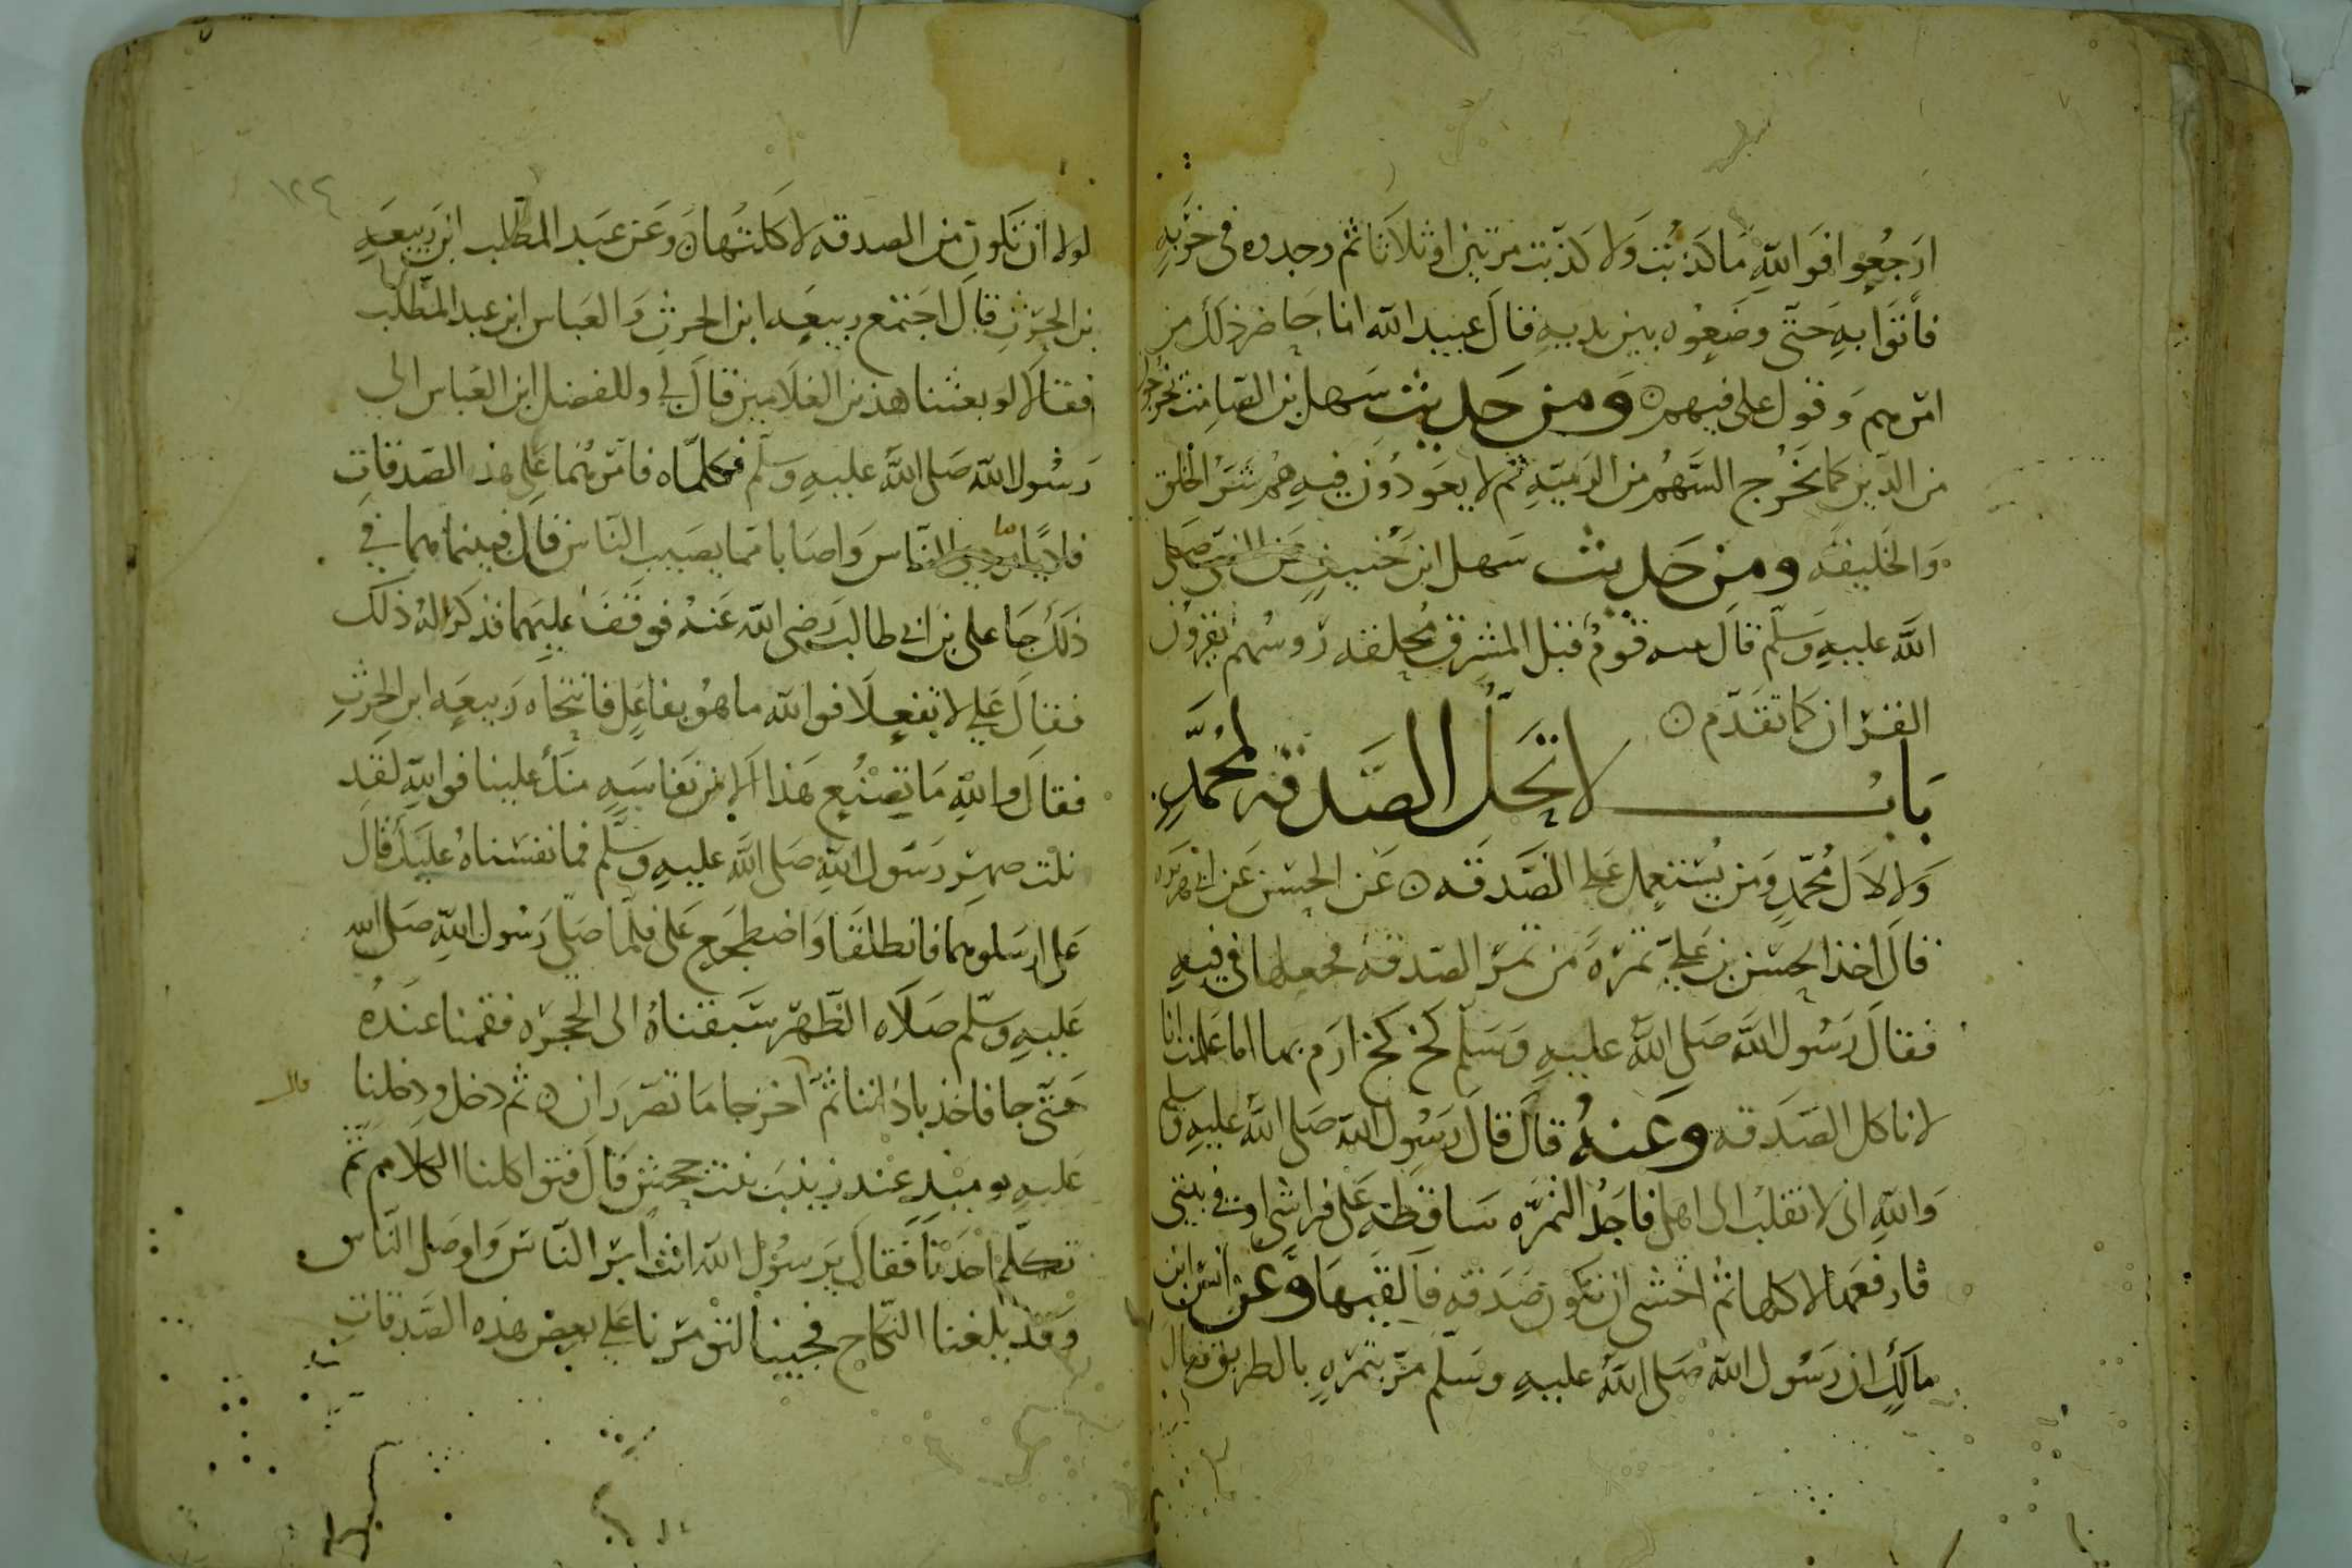 ارجعوا فوالله ما كذبت ولا كذبت مرتين او ثلاثا ثم وجدوه فى خربه
فاتوا به حتى وضعوه بين يديه قال عبيد الله انا حاضر ذلك من
امرهم وقول على فيهم ومن حديث سهل بن الصامت يخرجو
من الدين كما يخرج السهم من الرميه ثم لا يعودون فيه هم شر الخلق
والخليفه ومن حديث سهل ابن حنيف عن النبى صلى
الله عليه وسلم قال قوم قبل المشرق محلقه روسهم يقرون
القران كما تقدم
باب لا تحل الصدقه لمحمد
ولا لال محمد ومن يستعمل على الصدقه عن الحسن عن ابى هريره
قال اخذ الحسن بن على تمره من تمر الصدقه فجعلها فى فيه
فقال رسول الله صلى الله عليه وسلم كخ كخ ارم بها اما علمت انا
لا ناكل الصدقه وعنه قال قال رسول الله صلى الله عليه وسلم
والله انى لانقلب الى اهلى فاجد التمره ساقطه على فراشى او فى بيتى
فارفعها لاكلها ثم اخشى ان تكون صدقه فالقيها وعن انس ابن
مالك ان رسول الله صلى الله عليه وسلم مر بتمره بالطريق فقال
١٢٤
لولا ان تكون من الصدقه لاكلتها وعن عبد المطلب ابن ربيعه
بن الحرث قال اجتمع ربيعه ابن الحرث والعباس ابن عبد المطلب
فقالا لو بعثنا هذين الغلامين قال لى وللفضل ابن العباس الى
رسول الله صلى الله عليه وسلم فكلماه فامرهما على هذه الصدقات
فاديا ما الناس واصابا مما يصيب الناس قال فبينما هما فى
ذلك جا على بن ابى طالب رضى الله عنه فوقف عليهما فذكرا له ذلك
فقال على لا تفعلا فوالله ما هو بفاعل فانتحاه ربيعه ابن الحرث
فقال والله ما تصنع هذا الا من نفاسه منك علينا فوالله لقد
نلت صهر رسول الله صلى الله عليه وسلم فما نفسناه عليك قال
على ارسلوهما فانطلقا واضطجع على فلما صلى رسول الله صلى الله
عليه وسلم صلاه الظهر سبقناه الى الحجره فقمنا عنده
حتى جا فاخذ باذاننا ثم اخرجا ما تصرران ثم دخل ودخلنا
قال
عليه يوميذ عند زينب بنت جحش قال فتواكلنا الكلام ثم
تكلم احدنا فقال يرسول الله انت ابر الناس واوصل الناس
وقد بلغنا النكاح فجينا لتومرنا على بعض هذه الصدقات